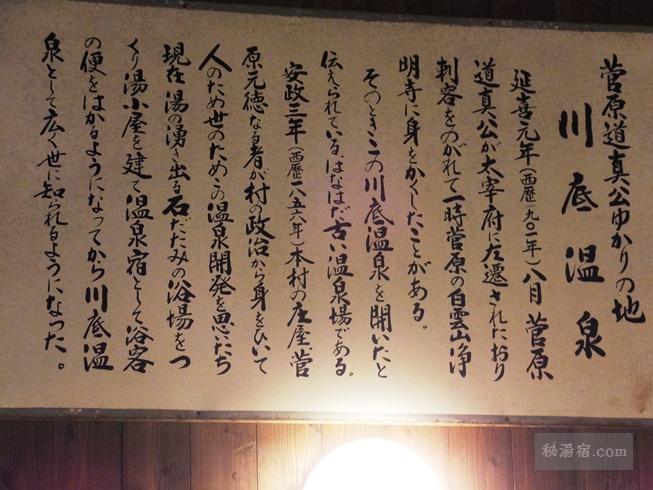 菅原道真公ゆかりの地
川底温泉
延喜元年(西歴九〇一年)八月 菅原
道真公が太宰府に左遷されたおり
刺客をのがれて一時菅原の白雲山浄
明寺に身をかくしたことがある。
そのときこの川底温泉を開いたと
伝えられている、はなはだ古い温泉場である。
安政三年(西歴一八五六年)本村の庄屋、菅
原元徳なる者が村の政治から身をひいて
人のため世のためこの温泉開発を思いたち
現在湯の湧き出る石だたみの浴場をつ
くり湯小屋を建て温泉宿として浴客
の便をはかるようになってから川底温
泉として広く世に知られるようになった。
秘湯宿.com